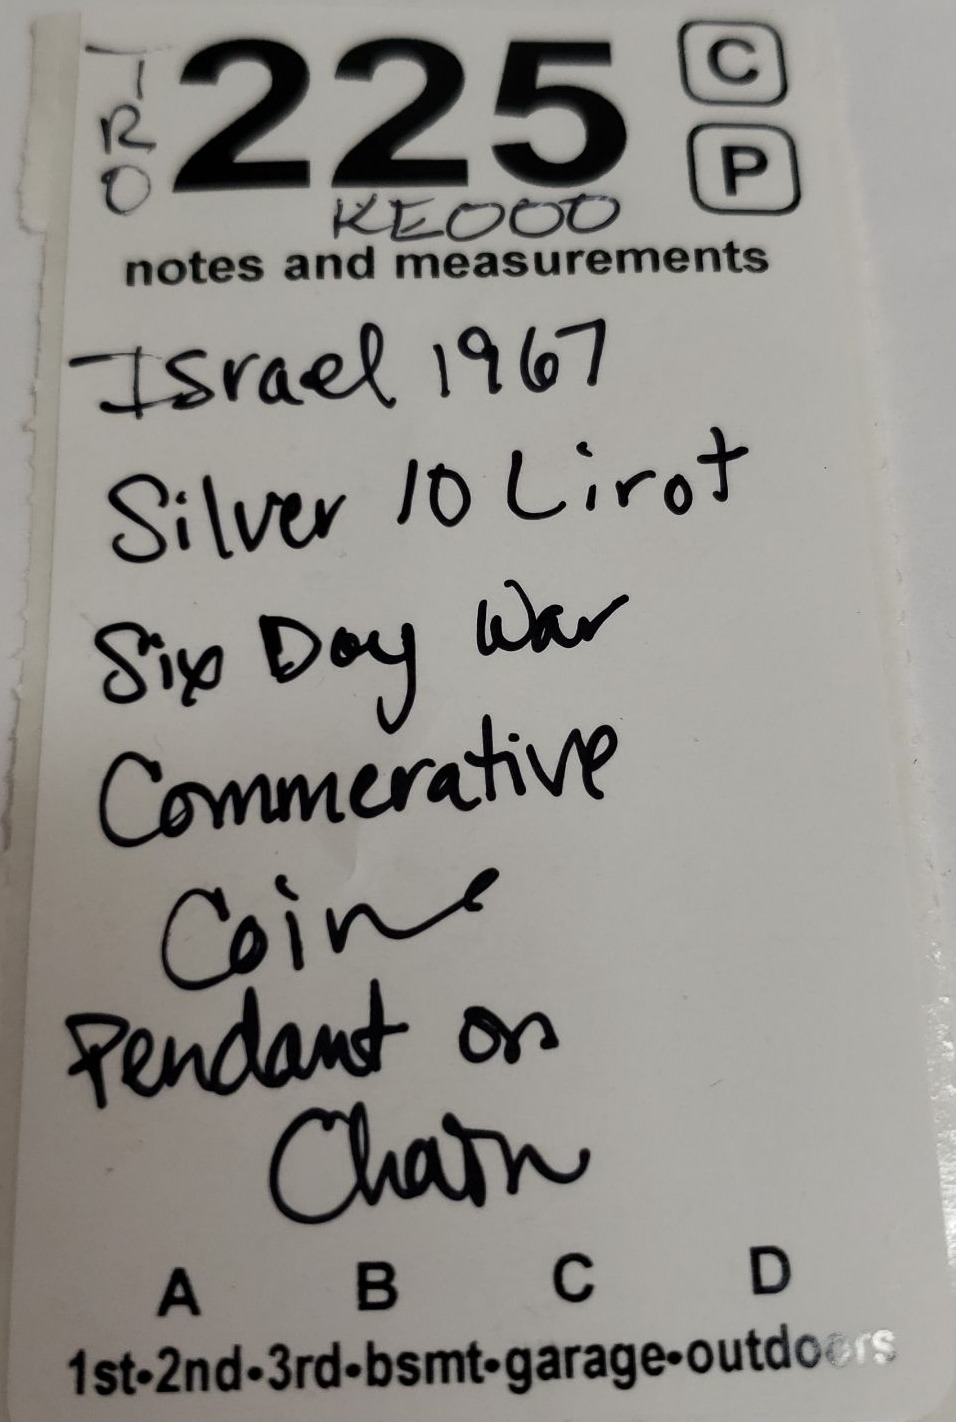 TRO
225
C
P
KE000
notes and measurements
Israel 1967
Silver 10 Lirot
Six Day War
Commerative
Coin
Pendant on
Chain
A B C D
1st•2nd•3rd•bsmt•garage•outdoors